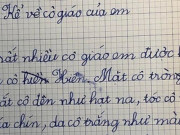 Kể về cô giáo của em
rất nhiều cô giáo em được h
cô hiền Hiền. Mắt cô tròn
mắt cô đen như hạt na, tóc cô
ía chín, da cô trắng như mâ